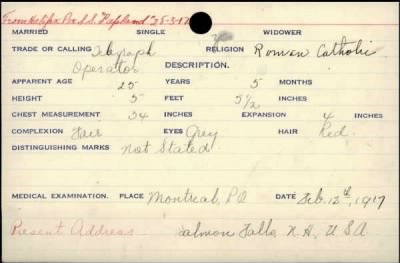 From Halifax Per S.S. "Lapland" 25-3-17
MARRIED SINGLE WIDOWER
TRADE OR CALLING Telegraph RELIGION Roman Catholic
Operator DESCRIPTION.
APPARENT AGE 25 YEARS 5 MONTHS
HEIGHT 5 FEET 5½ INCHES
CHEST MEASUREMENT 34 INCHES EXPANSION 4 INCHES
COMPLEXION Fair EYES Grey HAIR Red.
DISTINGUISHING MARKS Not Stated.
MEDICAL EXAMINATION. PLACE Montreal, P.Q DATE Feb. 12th, 1917
Present Address Salmon Falls, N.H., U.S.A